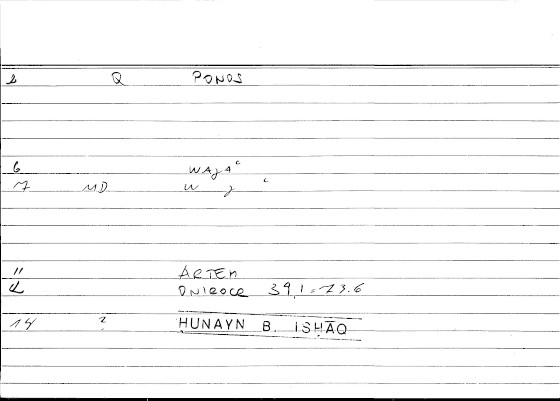 2 Q PONOS
6 WAJAʿ
7 MD W J ʿ
11 ARTEM
12 ONIROCR 39,1 = 73.6
14 ? HUNAYN B. ISḤĀQ